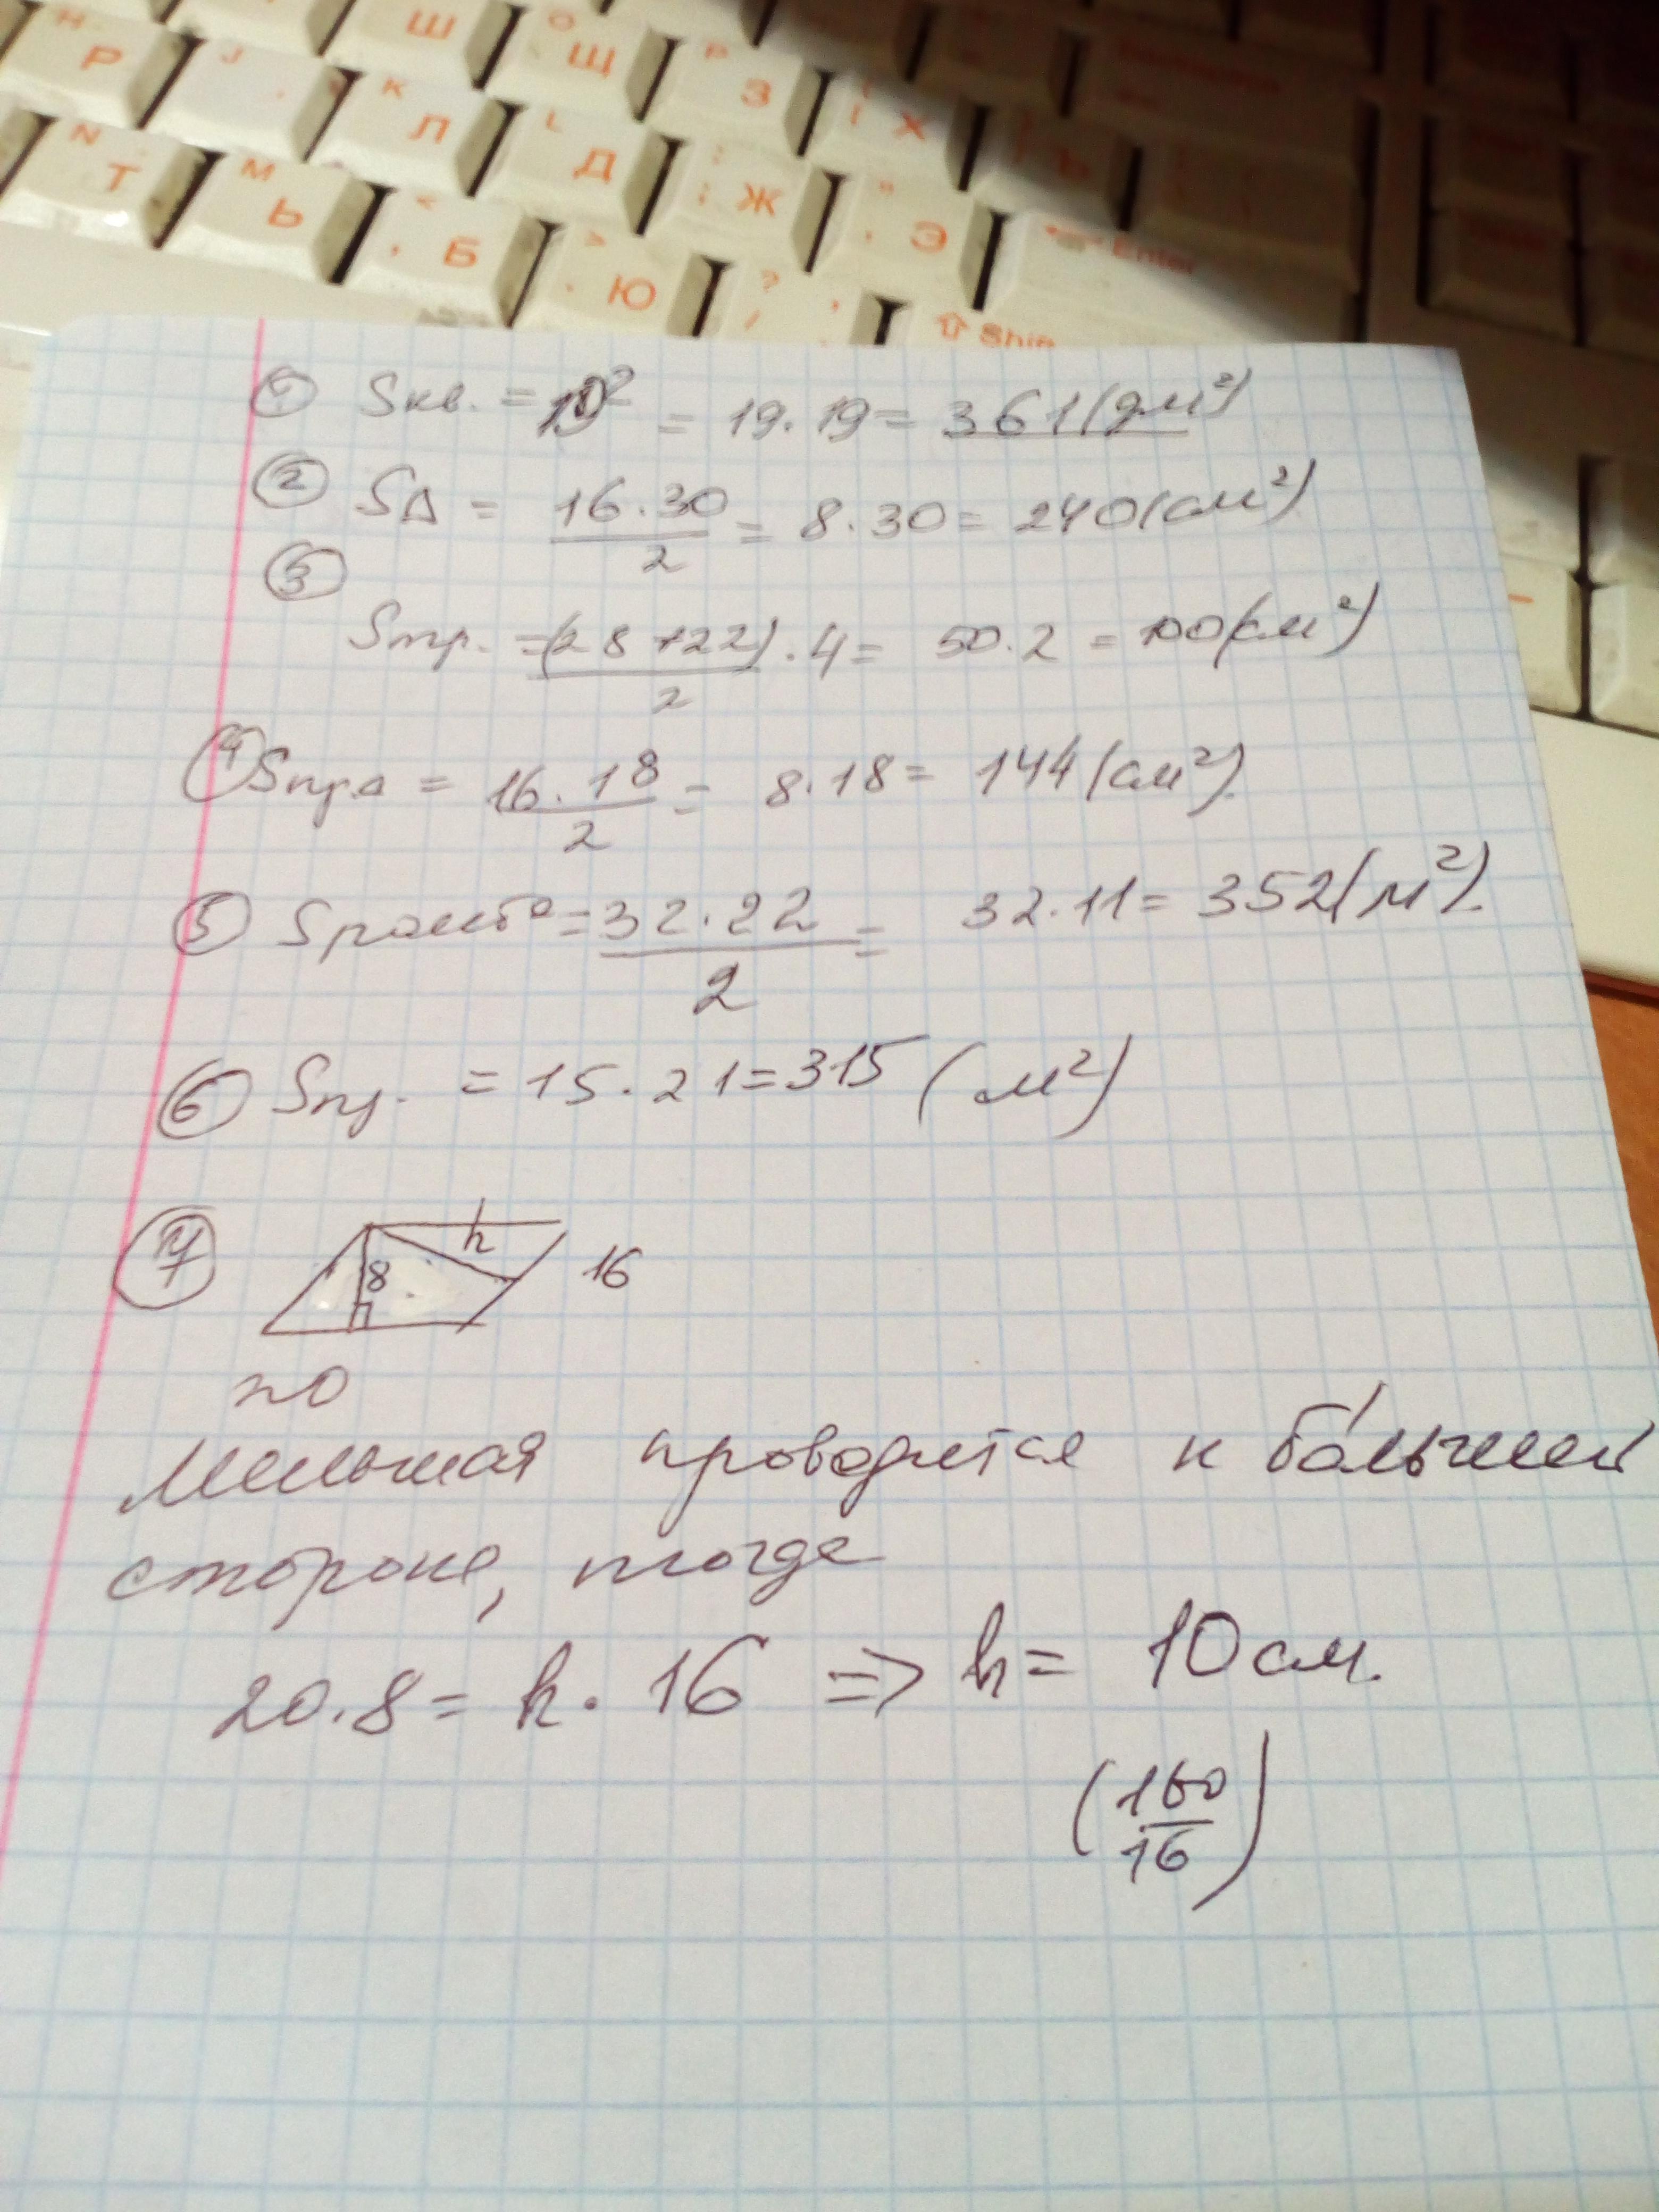 Ш Щ З Х
Р Л Д Ж Э Enter
Т Ь Б Ю Shift
1 Sкв. = 19² = 19·19 = 361(дм²)
2 S∆ = 16·30/2 = 8·30 = 240(см²)
3
Sтр. = (28+22)/2 · 4 = 50·2 = 100(см²)
4 Sпр.∆ = 16·18/2 = 8·18 = 144(см²).
5 Sромба = 32·22/2 = 32·11 = 352(м²).
6 Sпр. = 15·21 = 315 (м²)
7 h 8 16
Меньшая проводится к большей
стороне, тогда
20·8 = h·16 => h = 10см.
(160/16)